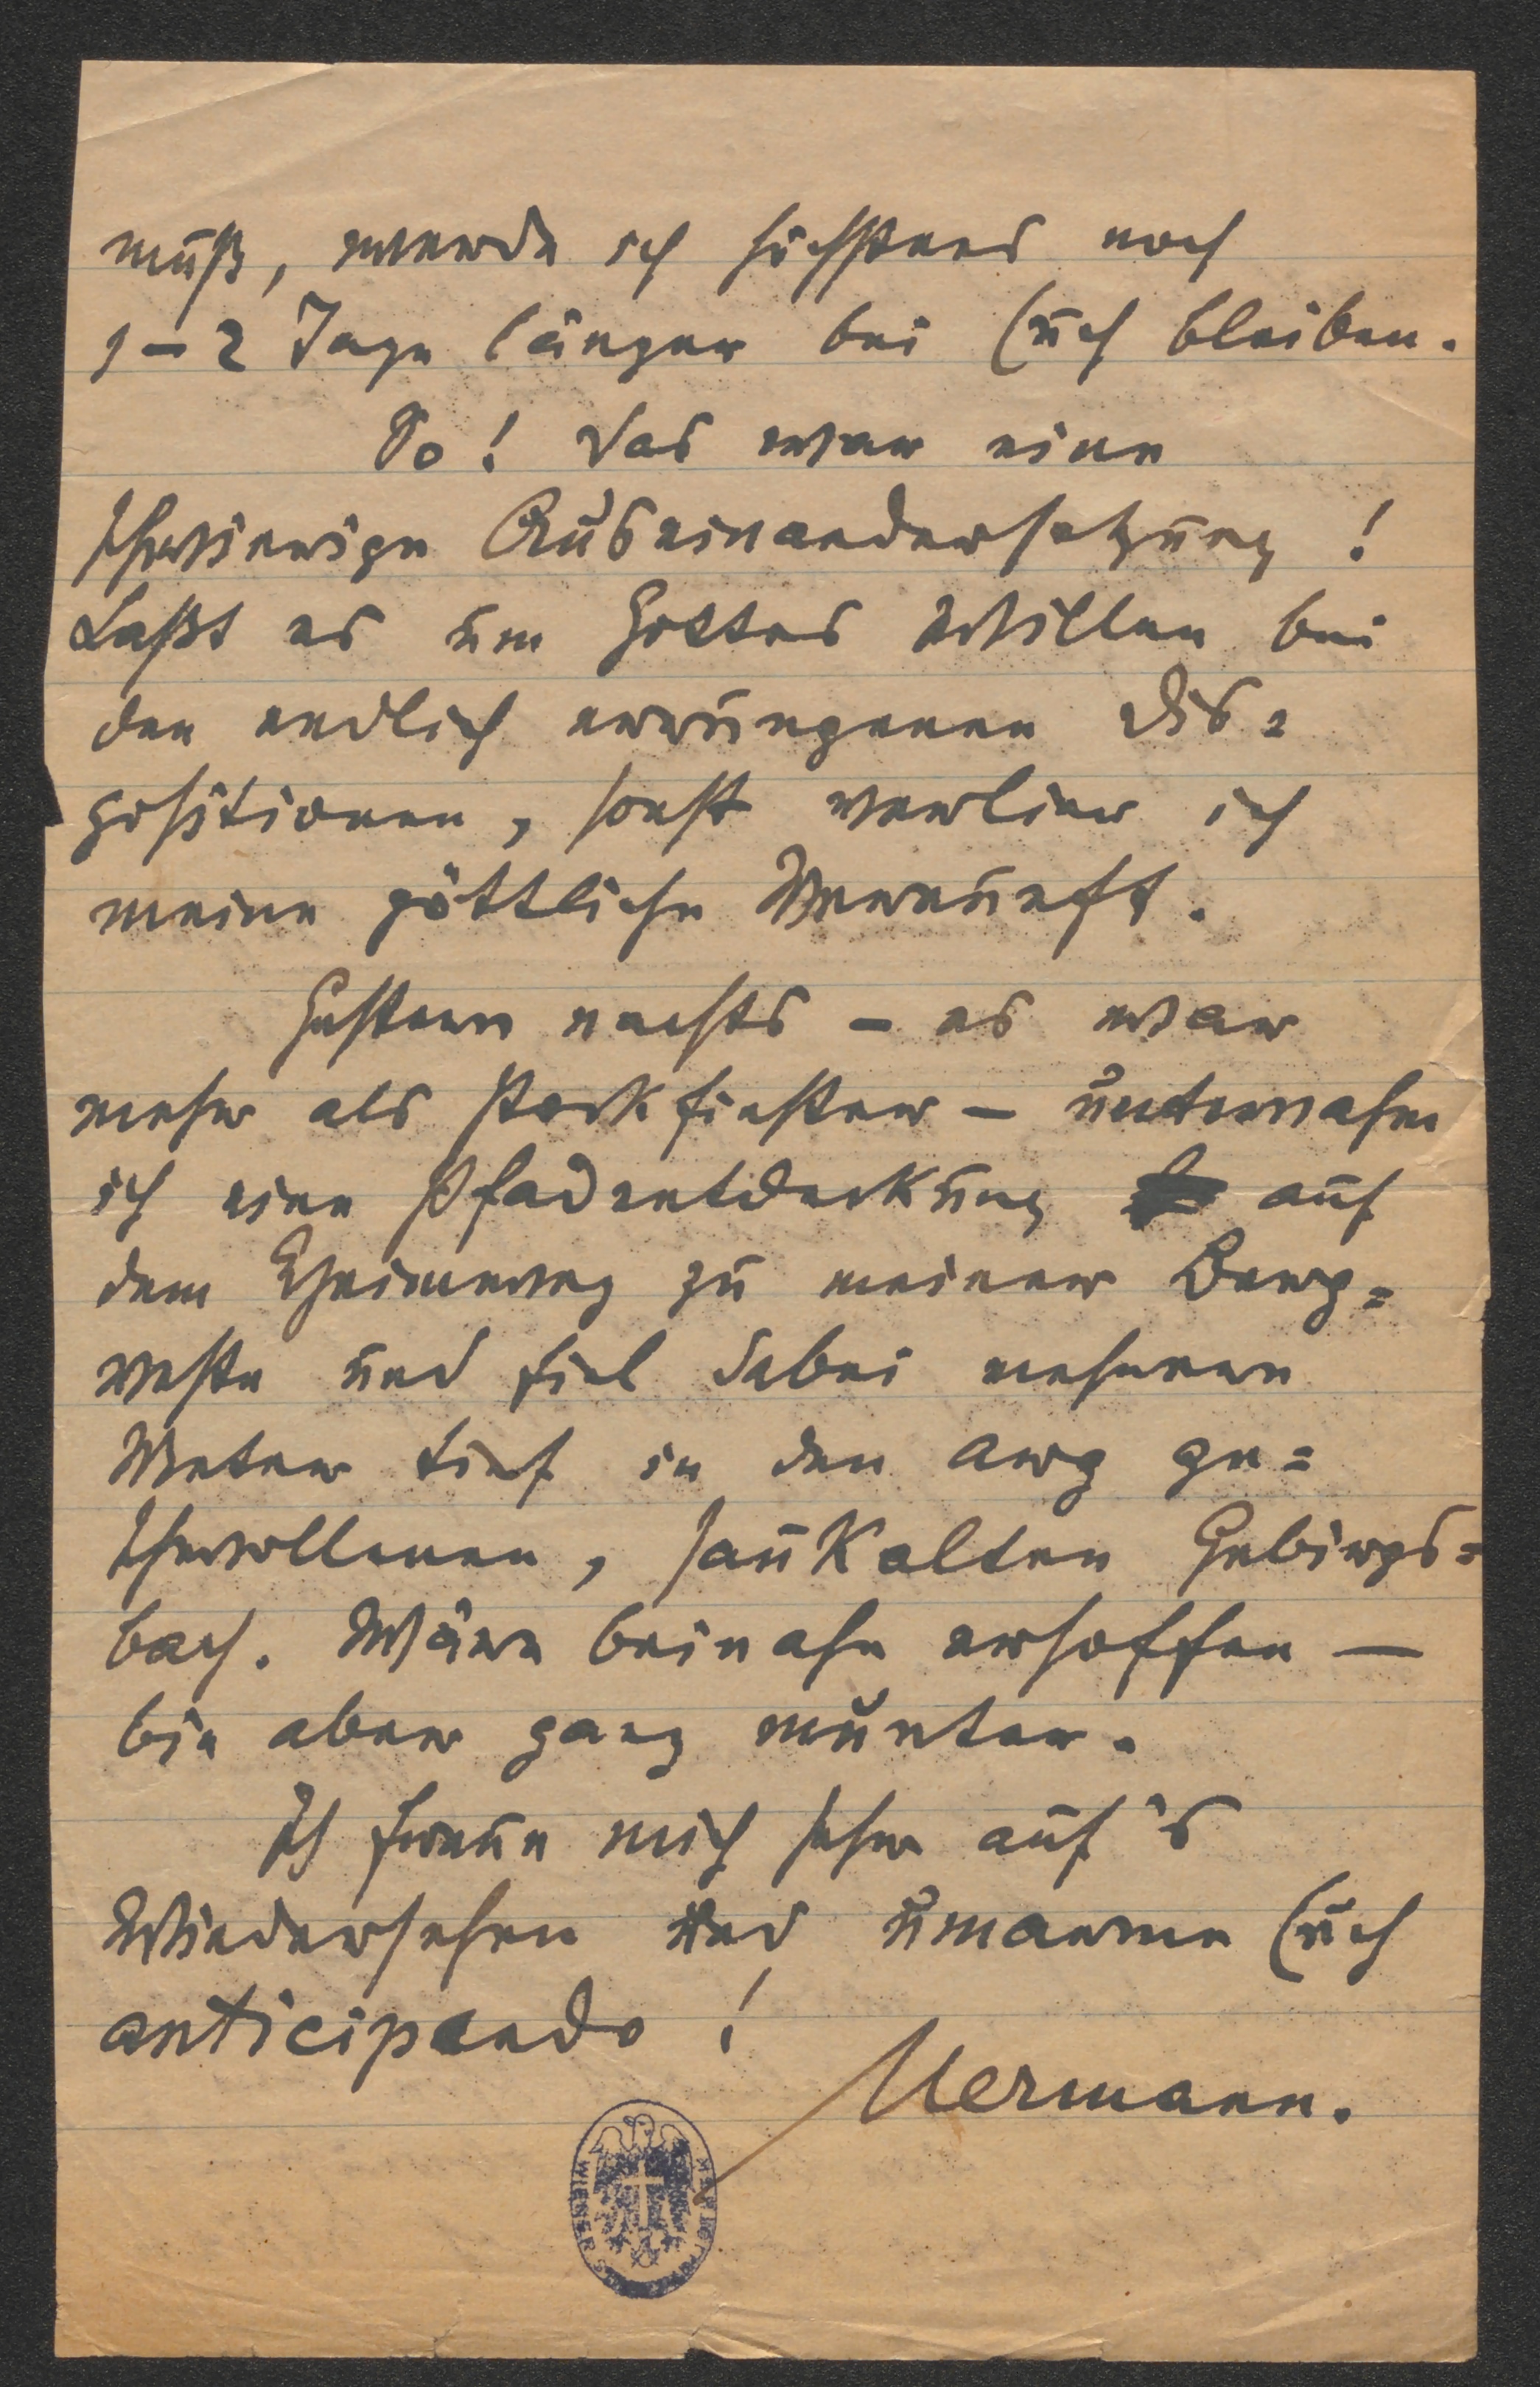 muß, werde ich höchstens noch
1–2 Tage länger bei Euch bleiben.
So! Das war eine
schwierige Auseinandersetzung!
Laßt es um Gottes Willen bei
den endlich errungenen Dis=
positionen, sonst verlier ich
meine göttliche Vernunft.
Gestern nachts – es war
mehr als stockfinster – unternahm
ich eine Pfadentdeckung auf
dem Heimweg zu meiner Berg=
veste und fiel dabei mehrere
Meter tief in den arg ge=
schwollenen, saukalten Gebirgs=
bach. Wäre beinahe ersoffen —
bin aber ganz munter.
Ich freue mich sehr auf's
Wiedersehen und umarme Euch
anticipando!
Hermann.
WIENER